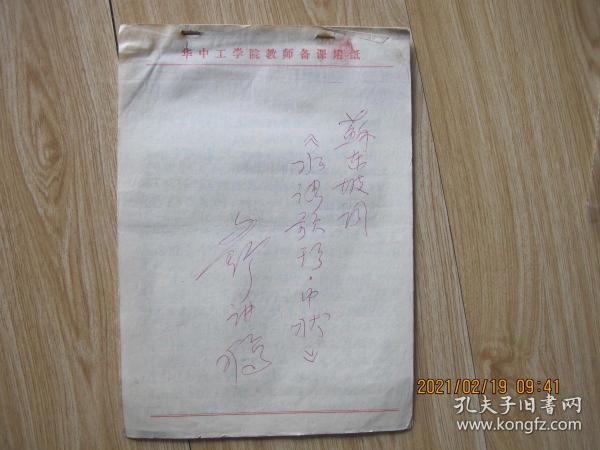 华中工学院教师备课用纸
蘇东坡词
《水调歌頭·中秋》
讲稿
2021/02/19 09:41
孔夫子旧书网
www.kongfz.com